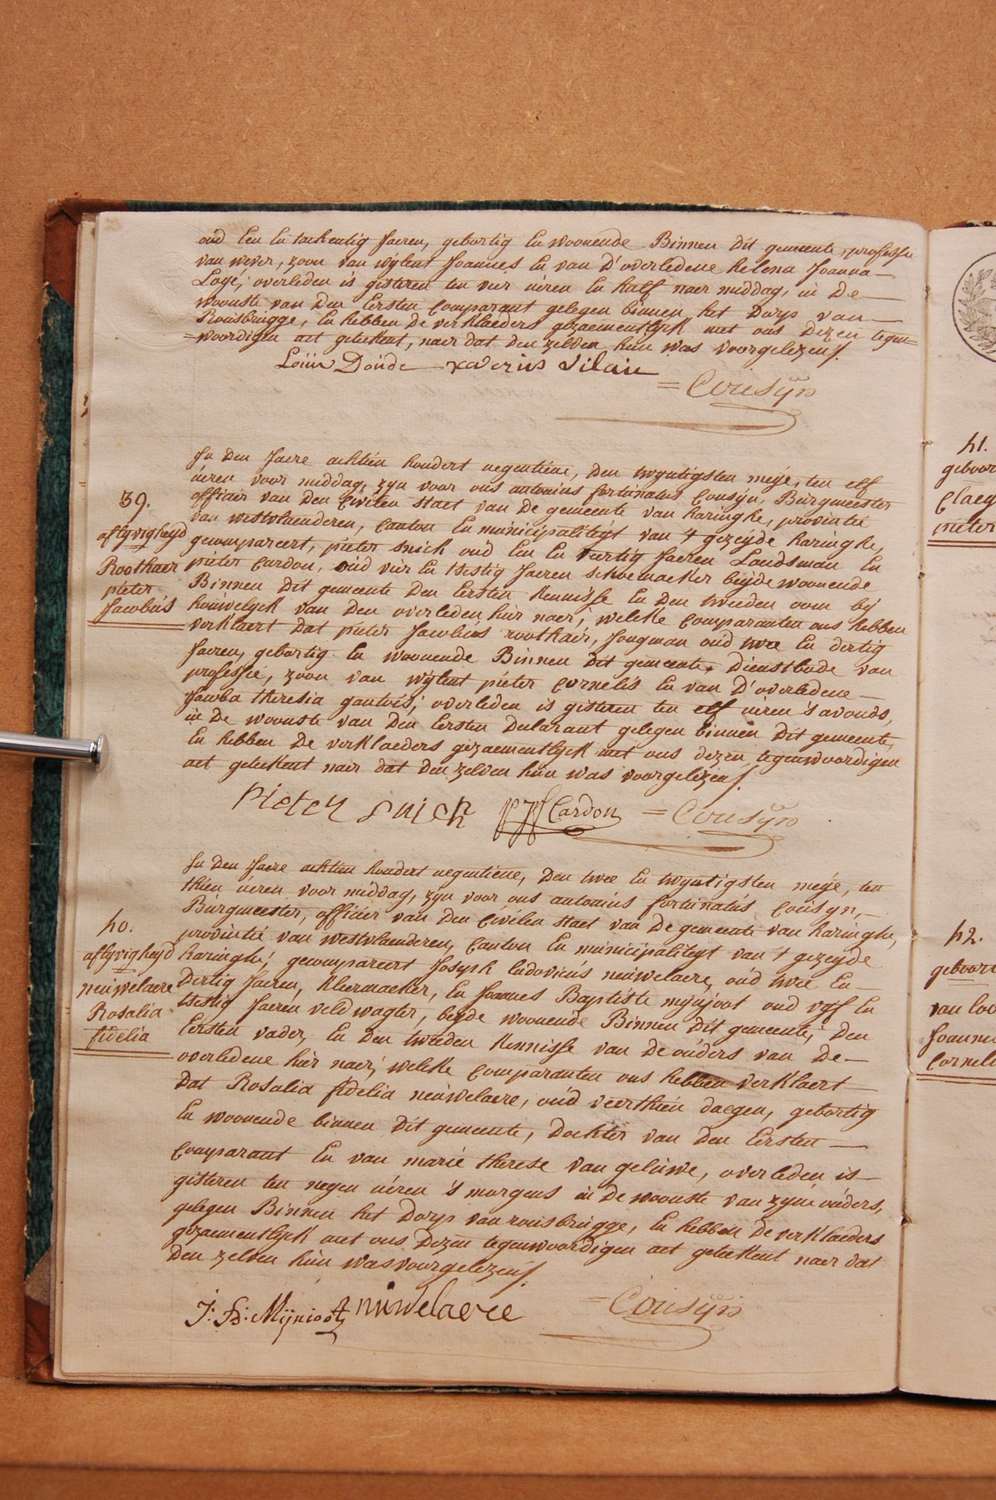 oud een en tachentig Jaeren, gebortig en woonende Binnen dit gemeente, professie
van wever, zoon van wijlent Joannes en van d'overledene helena Joanna
Logé, overleden is gisteren ten vier uren en half naer middag, in de
woonste van den Eersten comparant gelegen binnen het dorp van
Rousbrugge, en hebben de verklaeders gezaementlijk met ons dezen tegen=
=woordigen act geteekent, naer dat den zelven hun was voorgelezen
Louis Donde xaverius vilain
= Cousijn
39.
aflijvigheyd
Roothaer
pieter
Jacobus
In den Jaere achtien hondert negentiene, den twyntigsten meye, ten elf
uren voor middag, zyn voor ons antonius fortunatus Cousyn, Burgmeester
officier van den Civilen staet van de gemeente van haringhe, provintie
van westvlaenderen, Canton en municipaliteyt van 't gezeyde haringhe,
gecompareert, pieter snick oud een en veertig Jaeren Landsman en
pieter Cardon, oud vier en tsestig Jaeren schoemaeker beyde woonende
Binnen dit gemeente den Eersten kennisse en den tweeden oom bij
houwelyck van den overleden hier naer, welke comparanten ons hebben
verklaert dat pieter Jacobus roothaer, Jongman oud twee en dertig
Jaeren, gebortig en woonende Binnen dit gemeente, dienstbode van
professie, zoon van wijlent pieter cornelis en van d'overledene
Jacoba theresia gautois, overleden is gisteren ten elf uren 's avonds,
in de woonste van den Eersten declarant gelegen binnen dit gemeente,
en hebben de verklaeders gezaementlyck met ons dezen tegenwoordigen
act geteekent naer dat den zelven hun was voorgelezen
Pieter snick PJF Cardon = Cousijn
40.
aflyvigheyd
neuwelaere
Rosalia
fidelia
In den Jaere achtien hondert negentiene, den twee en twyntigsten meye, ten
thien uren voor middag, zyn voor ons antonius fortunatus Cousyn,
Burgmeester, officier van den Civilen staet van de gemeente van haringhe,
provintie van westvlaenderen, Canton en municipaliteyt van 't gezeyde
haringhe, gecompareert Joseph ludovicus neuwelaere, oud twee en
dertig Jaeren, kleermaeker, en Joannes Baptiste mynjoot oud vyf en
tsestig Jaeren veldwagter, beyde woonende Binnen dit gemeente, den
Eersten vader, en den tweeden kennisse van de ouders van de
overledene hier naer, welke comparanten ons hebben verklaert
dat Rosalia fidelia neuwelaere, oud veerthien daegen, gebortig
en woonende binnen dit gemeente, dochter van den Eersten
comparant en van marie therese van geluwe, overleden is
gisteren ten negen uren 's morgens in de woonste van zyne ouders,
gelegen Binnen het dorp van rousbrugge, en hebben de verklaeders
gezaementlyk met ons dezen tegenwoordigen act geteekent naer dat
den zelven hun was voorgelezen
J: B: Mijnioot nuwelaere = Cousijn
41.
geboor
Claey
pieter
42.
geboort
van loo
Joannes
Corneli